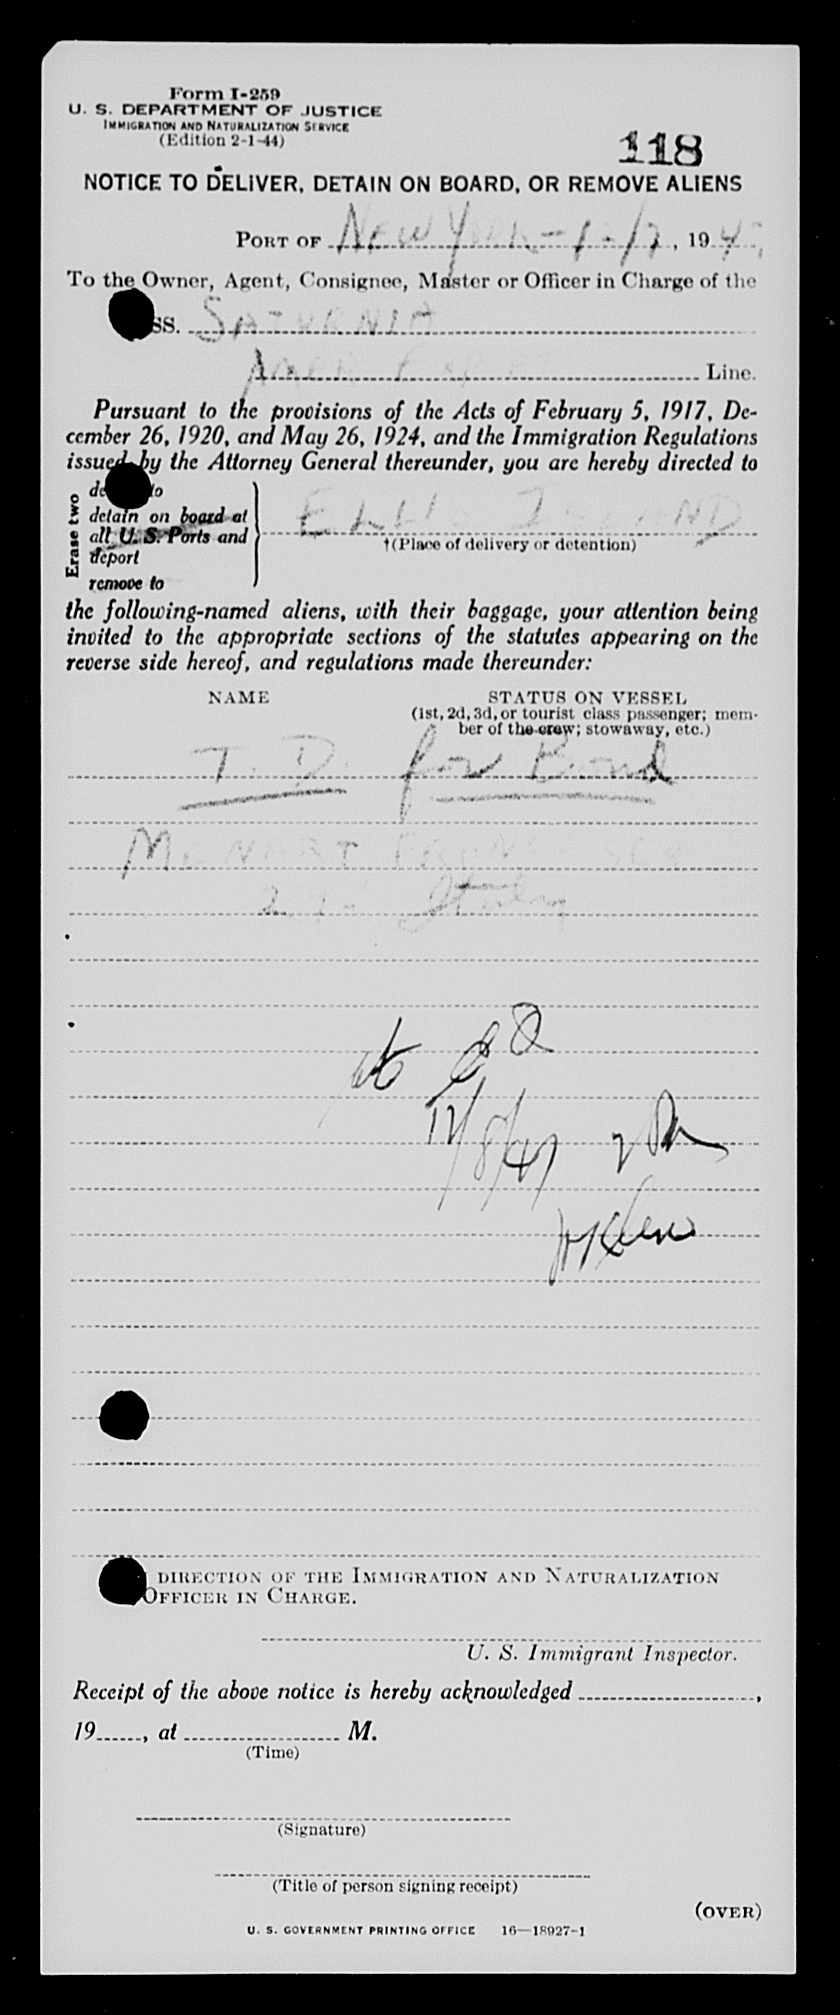 Form I-259
U. S. DEPARTMENT OF JUSTICE
IMMIGRATION AND NATURALIZATION SERVICE
(Edition 2-1-44)
118
NOTICE TO DELIVER, DETAIN ON BOARD, OR REMOVE ALIENS
PORT OF NEW YORK - 12/7, 1947
To the Owner, Agent, Consignee, Master or Officer in Charge of the
SS. SATURNIA
AMER EXPORT Line.
Pursuant to the provisions of the Acts of February 5, 1917, De-
cember 26, 1920, and May 26, 1924, and the Immigration Regulations
issued by the Attorney General thereunder, you are hereby directed to
Erase two
to
detain on board at
all U. S. Ports and
deport
remove to
ELLIS ISLAND
†(Place of delivery or detention)
the following-named aliens, with their baggage, your attention being
invited to the appropriate sections of the statutes appearing on the
reverse side hereof, and regulations made thereunder:
NAME
STATUS ON VESSEL
(1st, 2d, 3d, or tourist class passenger; mem-
ber of the crew; stowaway, etc.)
T. D. for Bond
Italy
12/8/47
DIRECTION OF THE IMMIGRATION AND NATURALIZATION
OFFICER IN CHARGE.
U. S. Immigrant Inspector.
Receipt of the above notice is hereby acknowledged ,
19 , at M.
(Time)
(Signature)
(Title of person signing receipt)
(OVER)
U. S. GOVERNMENT PRINTING OFFICE 16—18927-1